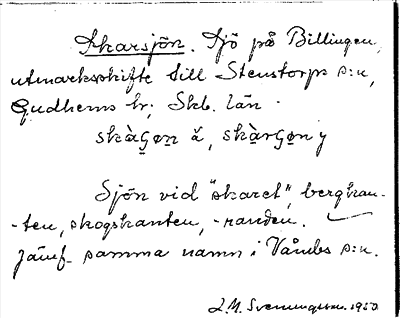 Skarsjön. Sjö på Billingen,
utmarksskifte till Stenstorps s:n,
Gudhems hr, Skb. län.
skàGøn ä, skàrGøn y
Sjön vid "skaret", bergskan-
-ten, skogskanten, -randen.
Jämf. samma namn i Våmbs s:n.
L. M. Svenungsson 1950.